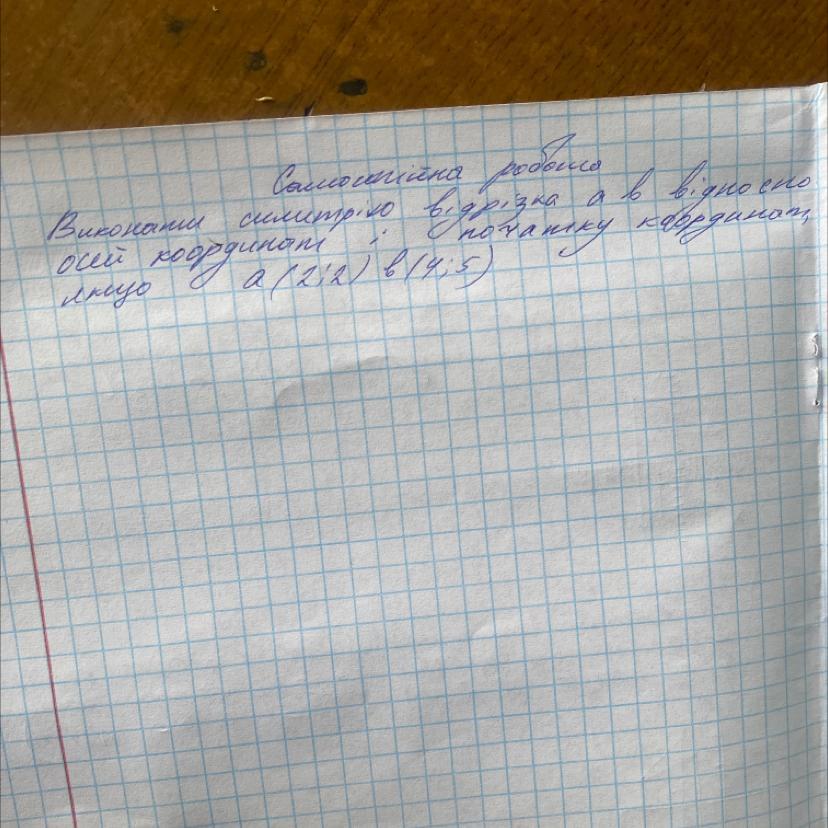 Самостійна робота
Виконати симитрію відрізка а в відносно
осей координат і початку координат,
якщо а (2;2) в (4;5)